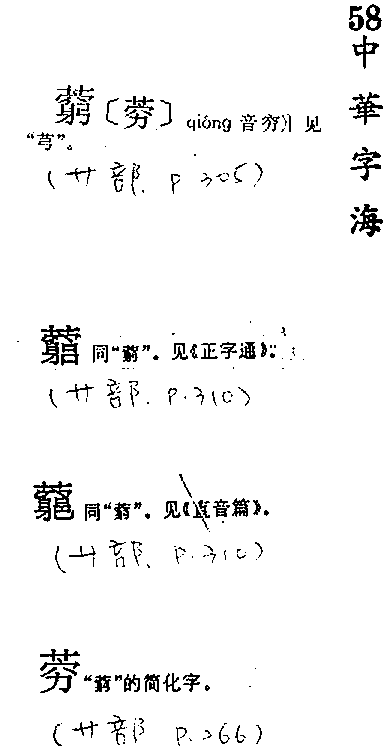 58
中華字海
藭〔䓖〕 qióng 音穷 见
“芎”。
(艹部. P 305)
同“藭”。见《正字通》。
(艹部. P.310)
同“藭”。见《直音篇》。
(艹部. P.310)
䓖 “藭”的简化字。
(艹部 P.266)